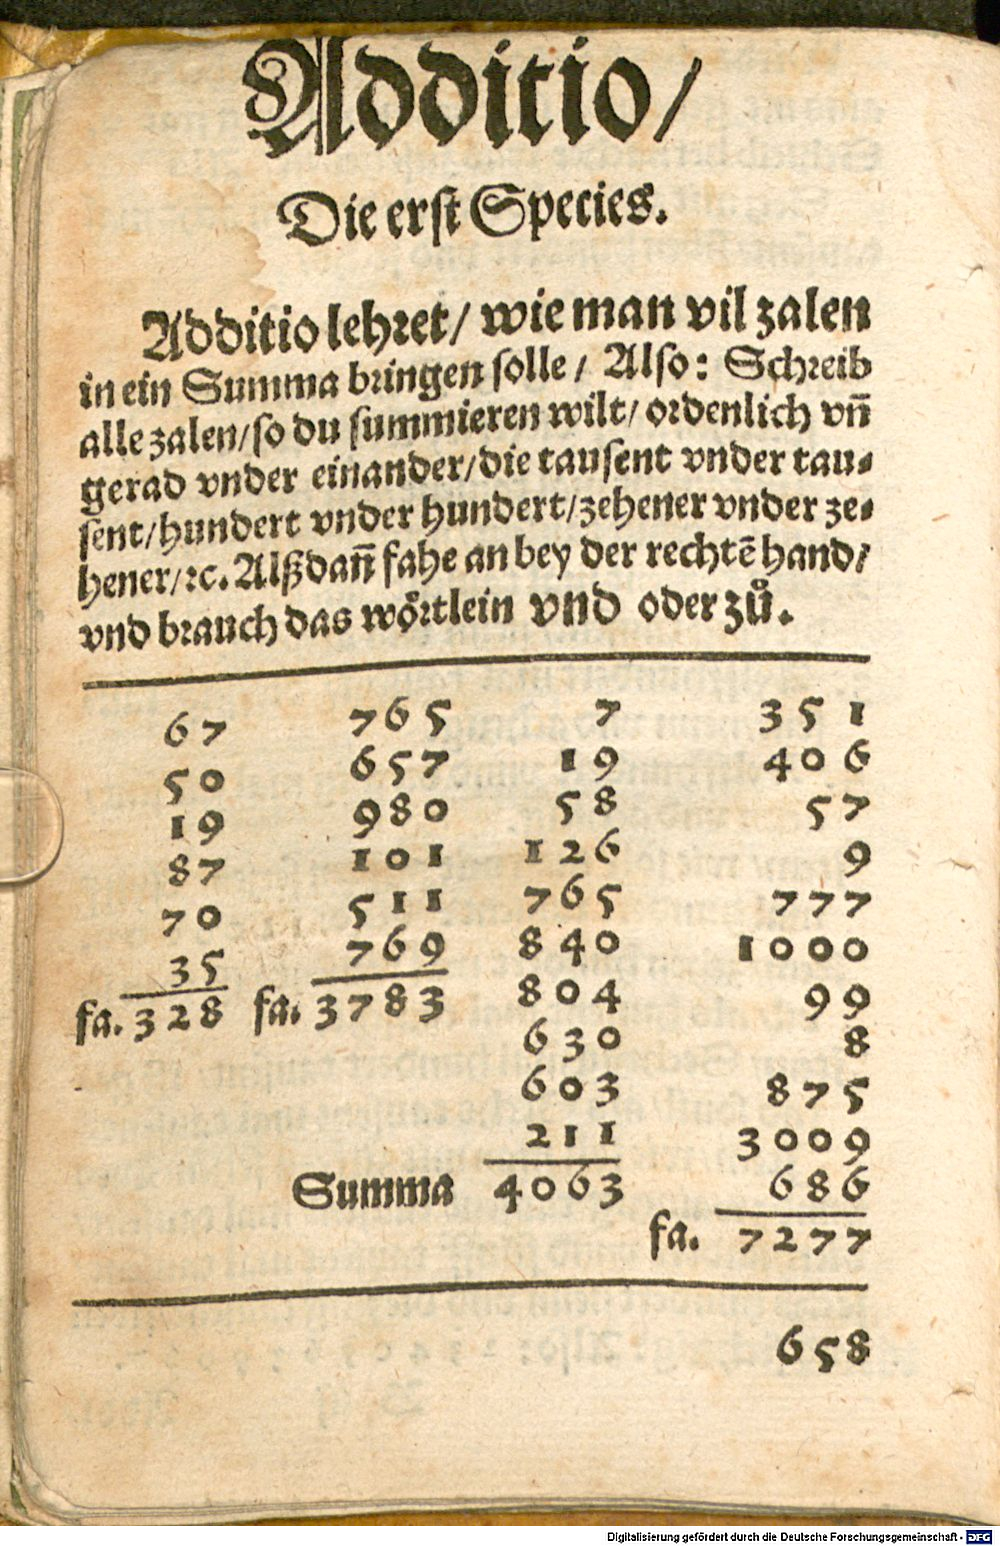 Additio/
Die erst Species.
Additio lehret/ wie man vil zalen
in ein Summa bringen solle/ Also: Schreib
alle zalen/so du summieren wilt/ ordenlich vn̄
gerad vnder einander/die tausent vnder tau⸗
sent/hundert vnder hundert/zehener vnder ze⸗
hener/ꝛc. Alßdañ fahe an bey der rechtē hand/
vnd brauch das wörtlein vnd oder zů.
67 765 7 351
50 657 19 406
19 980 58 57
87 101 126 9
70 511 765 777
35 769 840 1000
fa. 328 fa. 3783 804 99
630 8
603 875
211 3009
Summa 4063 686
fa. 7277
658
Digitalisierung gefördert durch die Deutsche Forschungsgemeinschaft - DFG